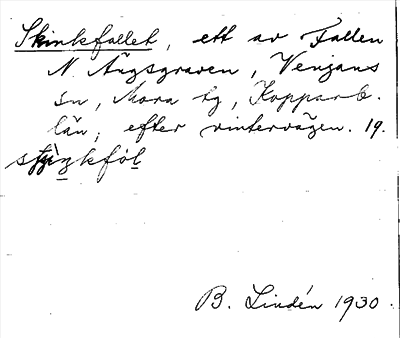 Skinkfallet, ett av Fallen
N. Ängsgraven, Venjans
sn, Mora tg, Kopparb.
län, efter vintervägen. 19.
B. Lindén 1930.